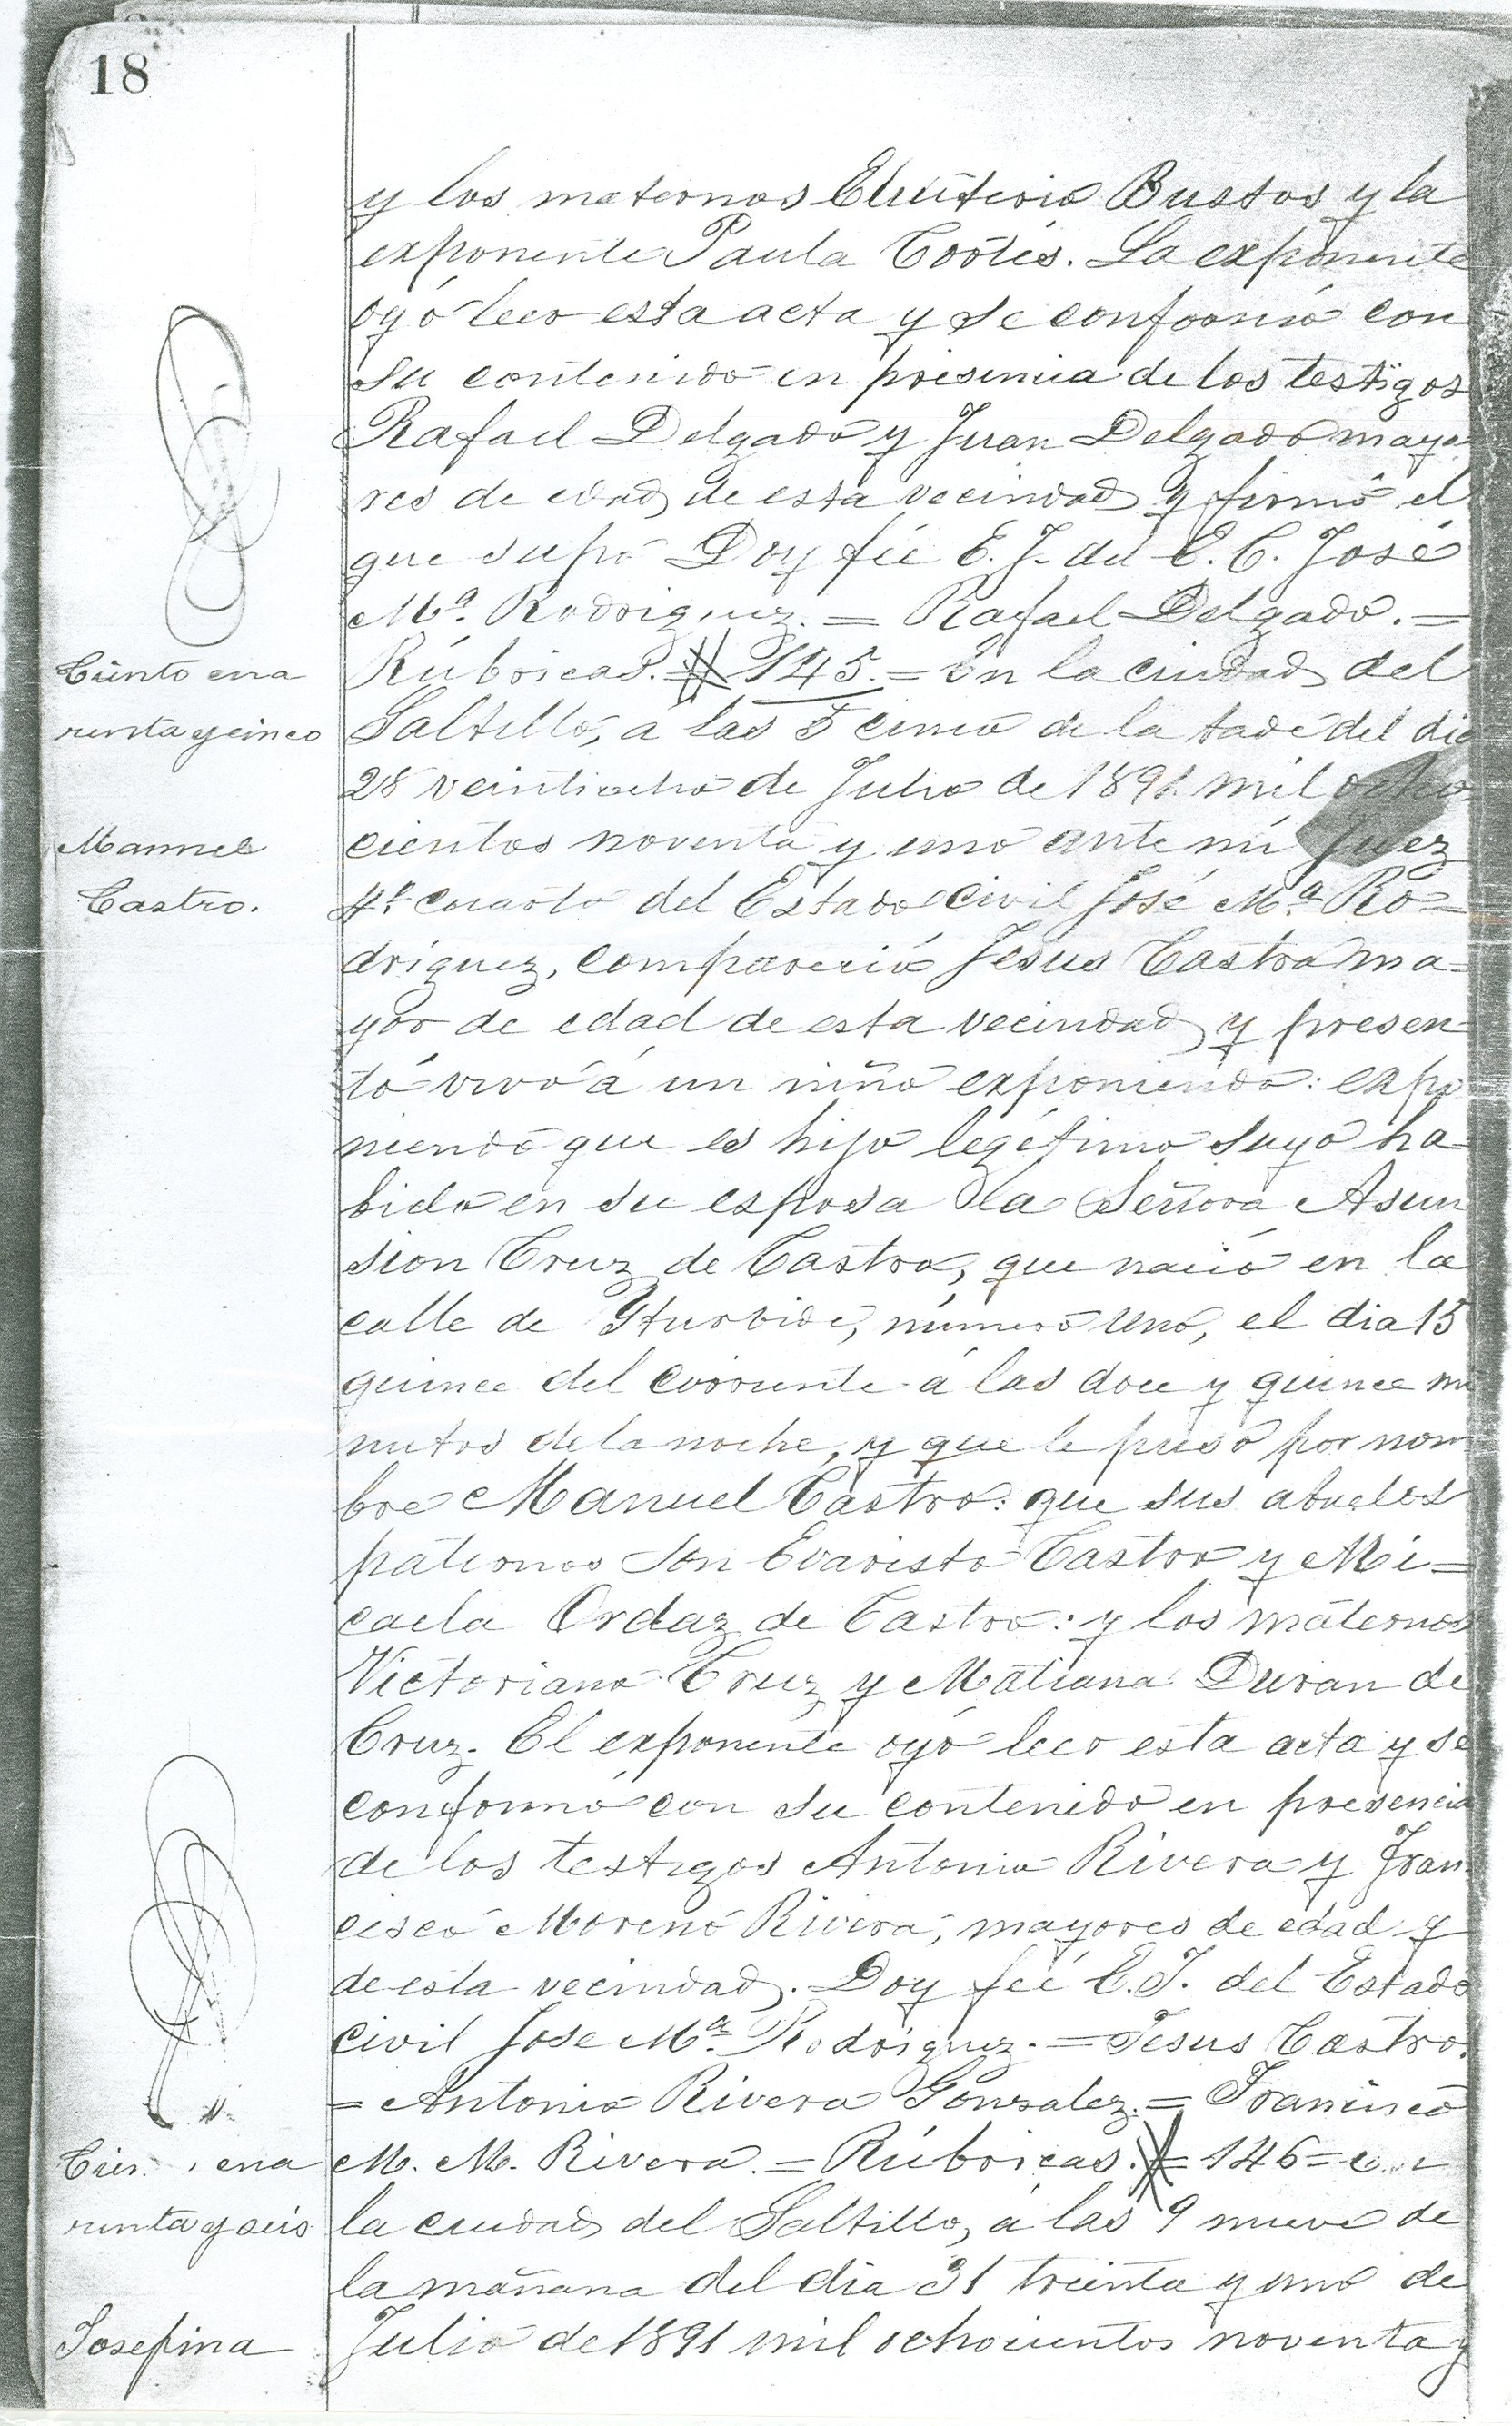 18
y los maternos Eleuterio Bustos y la
exponente Paula Cortés. La exponente
oyó leer esta acta y se conformó con
su contenido en presencia de los testigos
Rafael Delgado y Juan Delgado mayo-
res de edad, de esta vecindad y firmó el
que supo Doy fée E. J. del E. C. José
Ma. Rodriguez. = Rafael Delgado. =
Rúbricas. = 145. = En la ciudad del
Saltillo, a las 5 cinco de la tade del dia
28 veintiocho de Julio de 1891 mil ocho-
cientos noventa y uno ante mi Juez
4º cuarto del Estado Civil José Ma. Ro=
driguez, compareció Jesus Castro ma=
yor de edad de esta vecindad y presen=
tó vivo á un niño exponiendo: expo
niendo que es hijo legítimo suyo ha=
bido en su esposa la Señora Asun
sion Cruz de Castro, que nació en la
calle de Yturbide, número uno, el dia 15
quince del corriente á las doce y quince mi
nutos de la noche, y que le puso por nom
bre Manuel Castro: que sus abuelos
paternos son Evaristo Castro y Mi=
caela Ordaz de Castro: y los maternos
Victoriano Cruz y Matiana Duran de
Cruz. El exponente oyó leer esta acta y se
conformó con su contenido en presencia
de los testigos Antonio Rivera y Fran-
cisco Moreno Rivera, mayores de edad y
de esta vecindad. Doy feé E. J. del Estado
Civil Jose Ma. Rodriguez. = Jesus Castro.
= Antonio Rivera Gonzalez. = Francisco
M. M. Rivera. = Rúbricas. = 146 = En
la ciudad del Saltillo, á las 9 nueve de
la mañana del dia 31 treinta y uno de
Julio de 1891 mil ochocientos noventa y
Ciento cua
renta y cinco
Manuel
Castro.
cua
renta y seis
Josefina